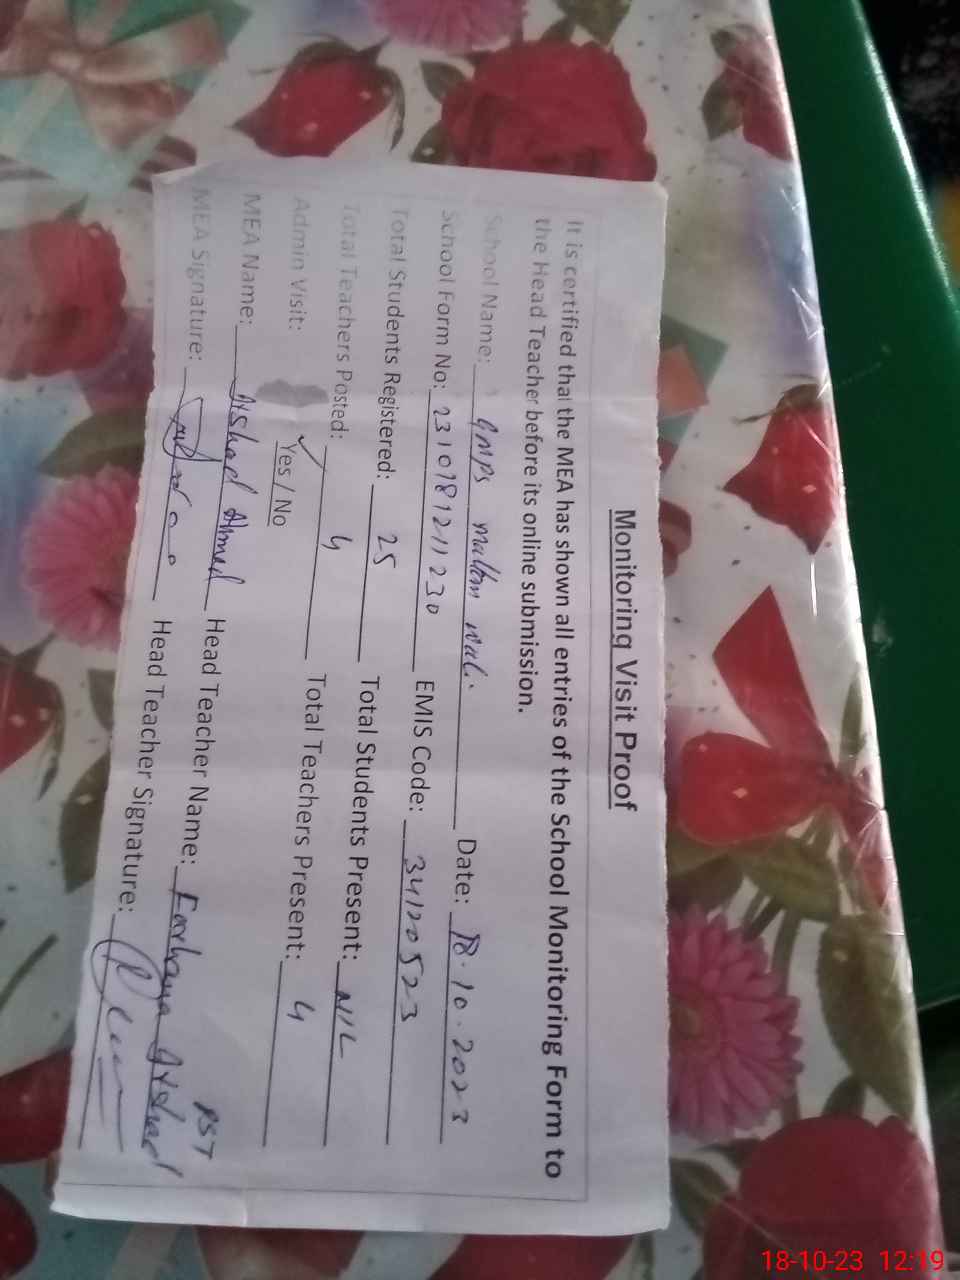 Monitoring Visit Proof
It is certified that the MEA has shown all entries of the School Monitoring Form to
the Head Teacher before its online submission.
School Name: GMPS Date: 18.10.2023
School Form No: 2310181211230 EMIS Code: 34120523
Total Students Registered: 25 Total Students Present: NIL
Total Teachers Posted: 4 Total Teachers Present: 4
Admin Visit: Yes / No
MEA Name: Arshad Ahmed Head Teacher Name: Farhana Arshad PST
MEA Signature: Head Teacher Signature:
18-10-23 12:19